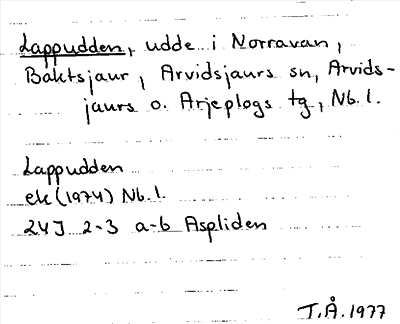 Lappudden, udde i Norravan,
Baktsjaur, Arvidsjaurs sn, Arvids-
jaurs o. Arjeplogs tg, Nb. l.
Lappudden
ek (1974) Nb. l.
24J 2-3 a-b Aspliden
T.Å. 1977